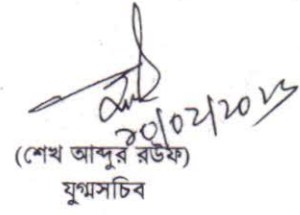 ২০/০২/২০২৩
(শেখ আব্দুর রউফ)
যুগ্মসচিব